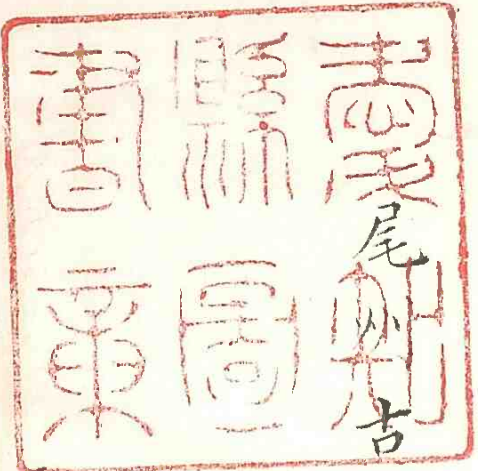 愛知
縣圖
書章
尾州古